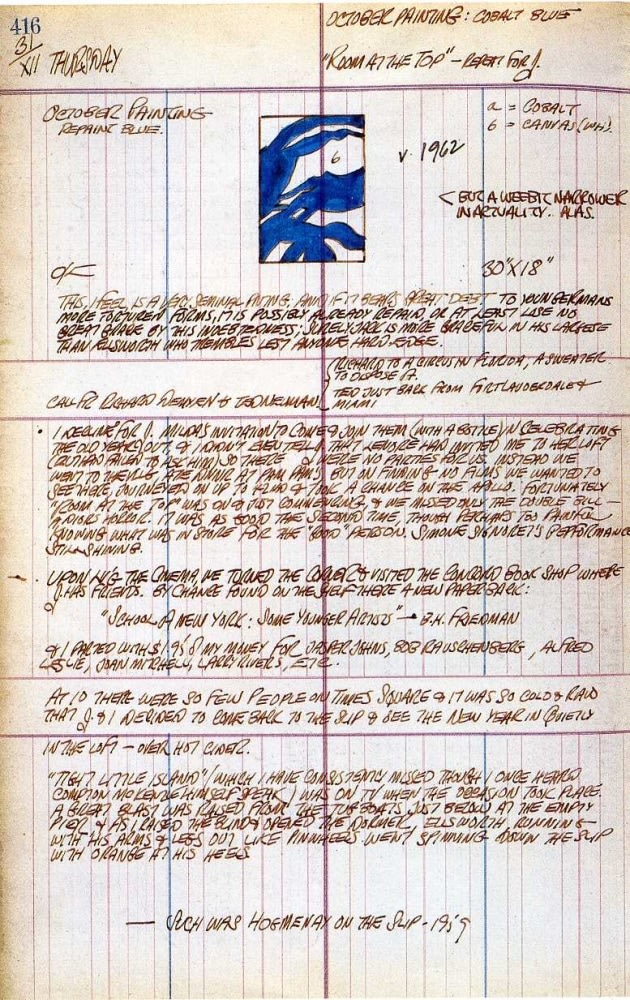 416
31/XII THURSDAY
OCTOBER PAINTING: COBALT BLUE
"ROOM AT THE TOP" - REPEAT FOR J.
OCTOBER PAINTING
REPAINT BLUE.
6
v. 1962
a = COBALT
6 = CANVAS (WH).
< BUT A WEE BIT NARROWER
IN ACTUALITY. ALAS.
30"X18"
THIS, I FEEL IS A VERY SEMINAL PNTING. AND IF IT BEARS GREAT DEBT TO YOUNGERMANS
MORE TORTURED FORMS, IT IS POSSIBLY ALREADY REPAID, OR AT LEAST LOSE NO
GREAT GRACE BY THIS INDEBTEDNESS; SURELY JACK IS MORE GRACEFUL IN HIS LARGESSE
THAN ELLSWORTH WHO TREMBLES LEST ANYONE HARD-EDGE.
CALL FR RICHARD & TED
RICHARD TO A CIRCUS IN FLORIDA, A SWEATER
TO DISPOSE OF.
TED JUST BACK FROM FORT LAUDERDALE &
MIAMI
• I DECLINE FOR J. MILDA'S INVITATION TO COME & JOIN THEM (WITH A BOTTLE) IN CELEBRATING
THE OLD YEAR'S OUT, & I DIDN'T EVEN TELL J. THAT LENORE HAD INVITED ME TO HER LOFT
(BUT HAD FAILED TO ASK HIM) SO THERE WERE NO PARTIES FOR US. INSTEAD WE
WENT TO THE VLG. ATE DINNER AT PAM PAM'S BUT ON FINDING NO FILMS WE WANTED TO
SEE THERE, JOURNEYED ON UP TO 42ND & TOOK A CHANCE ON THE APOLLO. FORTUNATELY
"ROOM AT THE TOP" WAS ON & JUST COMMENCING, & WE MISSED ONLY THE DOUBLE BILL -
A MINOR HORROR. IT WAS AS GOOD THE SECOND TIME, THOUGH PERHAPS TOO PAINFUL
KNOWING WHAT WAS IN STORE FOR THE "GOOD" PERSON. SIMONE SIGNORET'S PERFORMANCE
STILL SHINING.
UPON LVG THE CINEMA, WE TURNED THE CORNER & VISITED THE CONCORD BOOK SHOP WHERE
J. HAS FRIENDS. BY CHANCE FOUND ON THE SHELF THERE A NEW PAPER BACK:
"SCHOOL OF NEW YORK: SOME YOUNGER ARTISTS" - B.H. FRIEDMAN
& I PARTED WITH $1.95 OF MY MONEY FOR JASPER JOHNS, BOB RAUSCHENBERG, ALFRED
LESLIE, JOAN MITCHELL, LARRY RIVERS, ETC.
AT 10 THERE WERE SO FEW PEOPLE ON TIMES SQUARE & IT WAS SO COLD & RAW
THAT J. & I DECIDED TO COME BACK TO THE SLIP & SEE THE NEW YEAR IN QUIETLY
IN THE LOFT - OVER HOT CIDER.
"TIGHT LITTLE ISLAND" (WHICH I HAVE CONSISTENTLY MISSED THOUGH I ONCE HEARD
COMPTON MCKENZIE HIMSELF SPEAK) WAS ON TV WHEN THE OCCASION TOOK PLACE.
A GREAT BLAST WAS RAISED FROM THE TUGBOATS JUST BELOW AT THE EMPTY
PIER & AS I RAISED THE BLIND & OPENED THE DORMER, ELLSWORTH, RUNNING -
WITH HIS ARMS & LEGS OUT LIKE PINWHEELS WENT SPINNING DOWN THE SLIP
WITH ORANGE AT HIS HEELS
— SUCH WAS HOGMENAY ON THE SLIP - 1959